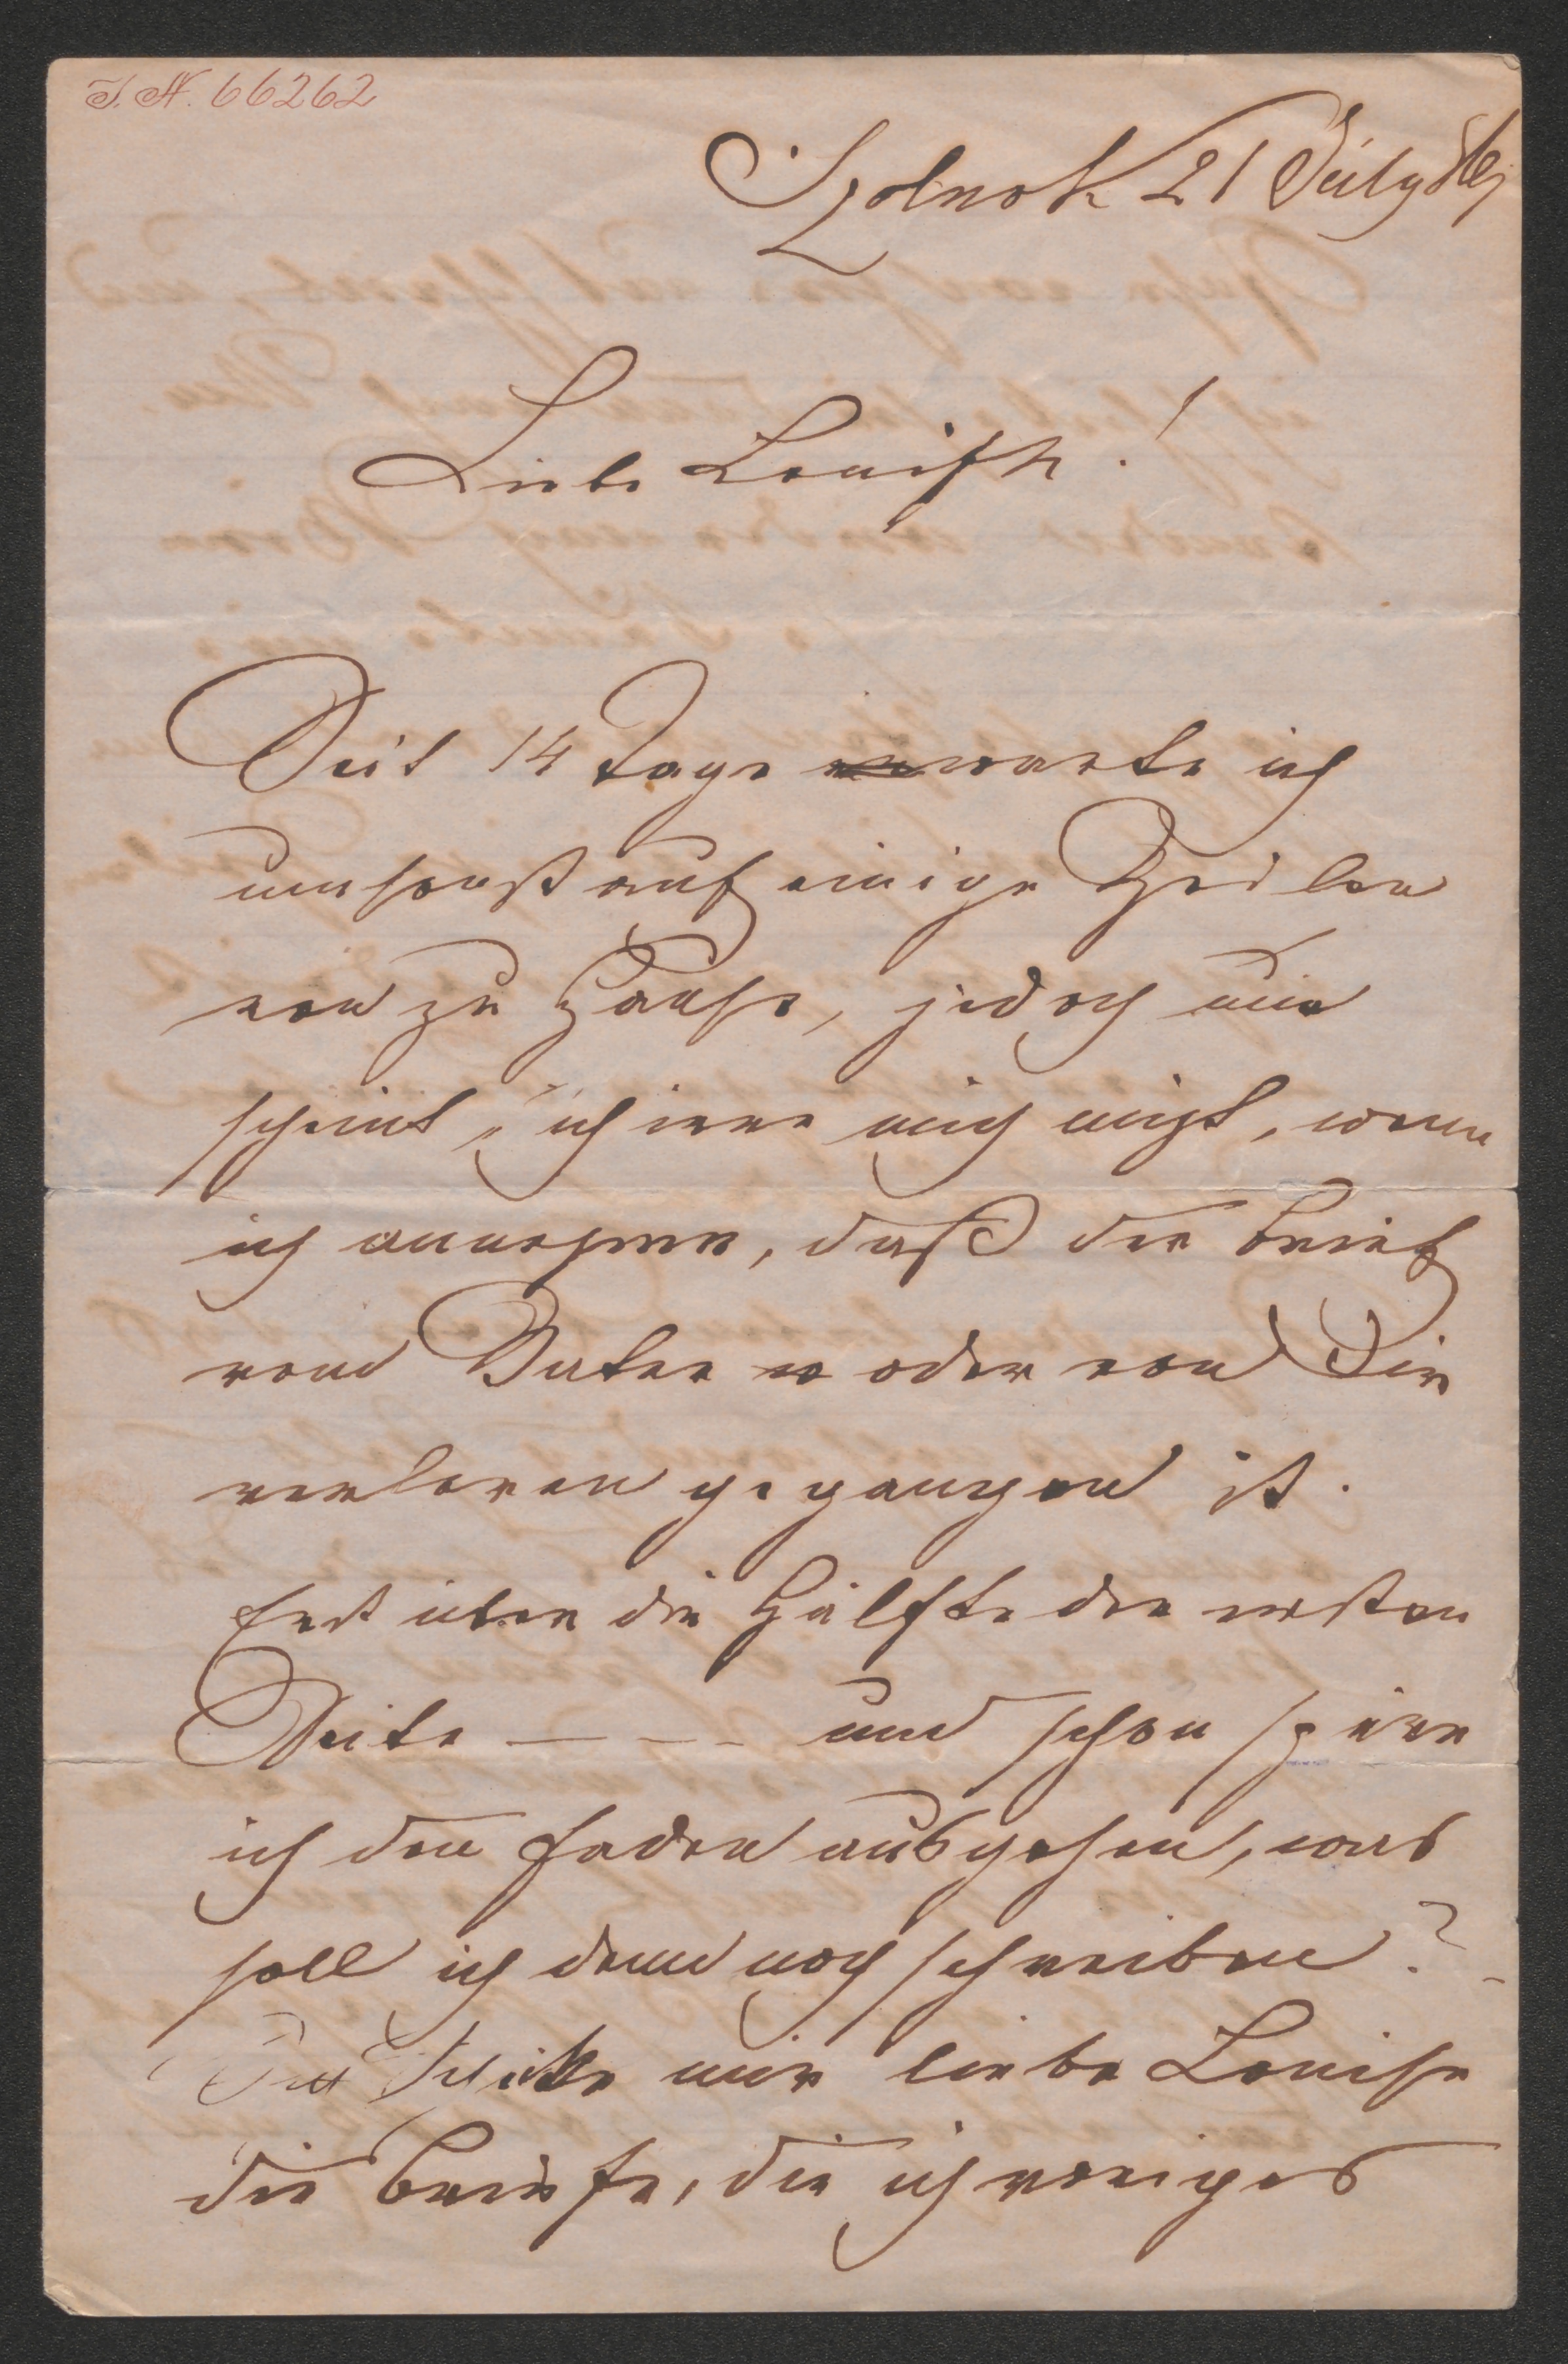 I. N. 66262
Szolnok 21 July 86
Liebe Louise!
Seit 14 Tage warte ich
umsonst auf einige Zeilen
von zu Hause, jedoch mir
scheint, ich irre mich nicht, wenn
ich annehme, daß der Brief
vom Vater oder von Dir
verloren gegangen ist.
Erst über die Hälfte der ersten
Seite – – – – und schon spüre
ich den Faden ausgehen, was
soll ich denn noch schreiben?
Schicke mir liebe Louise
die Briefe, die ich voriges